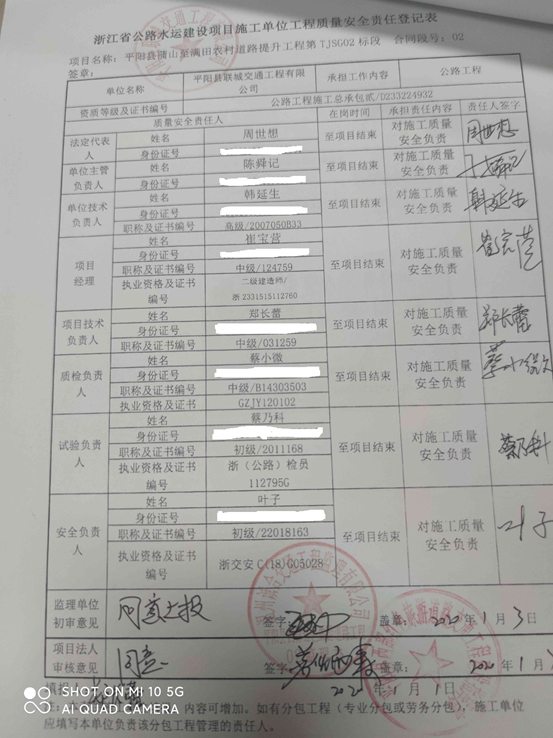 浙江省公路水运建设项目施工单位工程质量安全责任登记表
项目名称：平阳县 至满田农村道路提升工程第TJSG02标段 合同段号：02
签章：
单位名称 平阳县联城交通工程有限公司 承担工作内容 公路工程
资质等级及证书编号 公路工程施工总承包贰/D233224932
质量安全责任人 在岗时间 承担责任内容 责任人签字
法定代表人 姓名 周世想 至项目结束 对施工质量安全负责 周世想
身份证号
单位主管负责人 姓名 陈舜记 至项目结束 对施工质量安全负责
身份证号
单位技术负责人 姓名 韩延生 至项目结束 对施工质量安全负责 韩延生
身份证号
职称及证书编号 高级/2007050B33
项目经理 姓名 崔宝营 至项目结束 对施工质量安全负责 崔宝营
身份证号
职称及证书编号 中级/124759
执业资格及证书编号 二级建造师/浙2331515112760
项目技术负责人 姓名 郑长蕾 至项目结束 对施工质量安全负责 郑长蕾
身份证号
职称及证书编号 中级/031259
质检负责人 姓名 蔡小微 至项目结束 对施工质量安全负责
身份证号
职称及证书编号 中级/B14303503
执业资格及证书 GZJY120102
试验负责人 姓名 蔡乃科 至项目结束 对施工质量安全负责 蔡乃科
身份证号
职称及证书编号 初级/2011168
执业资格及证书编号 浙（公路）检员112795G
安全负责人 姓名 叶子 至项目结束 对施工质量安全负责 叶子
身份证号
职称及证书编号 初级/22018163
执业资格及证书 浙交安C(18)G05028
监理单位初审意见 同意上报 签字： 盖章： 2020年1月3日
项目法人审核意见 同意 签字： 盖章： 2020年1月
填报人： 年1月1日
内容可增加。如有分包工程（专业分包或劳务分包），施工单位
应填写本单位负责该分包工程管理的责任人。
SHOT ON MI 10 5G
AI QUAD CAMERA